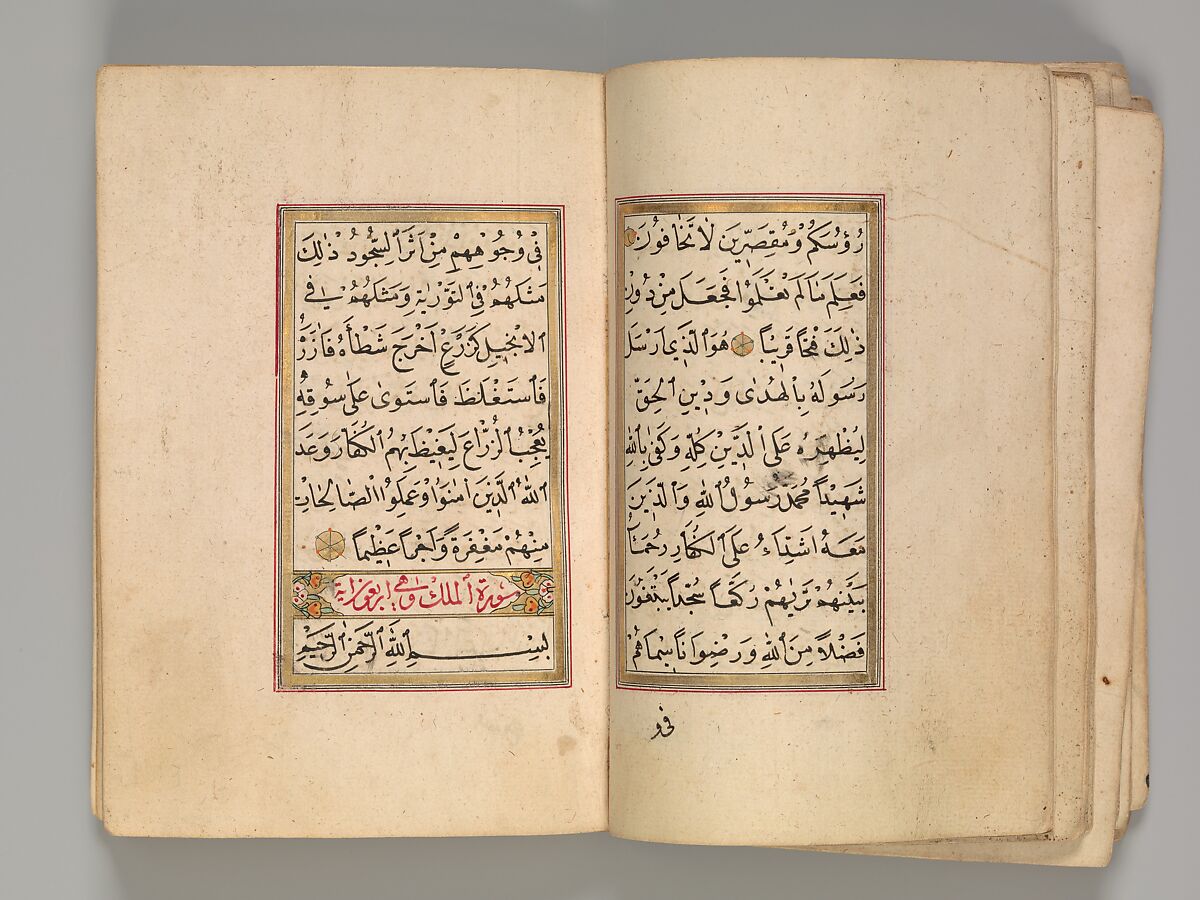 رُؤُسَكُمْ وَمُقَصِّرِينَ لَا تَخَافُونَ
فَعَلِمَ مَا لَمْ تَعْلَمُوا فَجَعَلَ مِنْ دُونِ
ذٰلِكَ فَتْحًا قَرِيبًا هُوَ ٱلَّذِي اَرْسَلَ
رَسُولَهُ بِالْهُدٰى وَدِينِ ٱلْحَقِّ
لِيُظْهِرَهُ عَلَى ٱلدِّينِ كُلِّهِ وَكَفٰى بِاللّٰهِ
شَهِيدًا مُحَمَّدٌ رَسُولُ ٱللّٰهِ وَٱلَّذِينَ
مَعَهُ اَشِدَّاءُ عَلَى ٱلْكُفَّارِ رُحَمَاءُ
بَيْنَهُمْ تَرٰيهُمْ رُكَّعًا سُجَّدًا يَبْتَغُونَ
فَضْلًا مِنَ ٱللّٰهِ وَرِضْوَانًا سِيمَاهُمْ
فى و
فِي وُجُوهِهِمْ مِنْ اَثَرِ ٱلسُّجُودِ ذٰلِكَ
مَثَلُهُمْ فِي ٱلتَّوْرٰيةِ وَمَثَلُهُمْ فِي
ٱلْاِنْجِيلِ كَزَرْعٍ اَخْرَجَ شَطْأَهُ فَاٰزَرَهُ
فَاسْتَغْلَظَ فَاسْتَوٰى عَلٰى سُوقِهِ
يُعْجِبُ ٱلزُّرَّاعَ لِيَغِيظَ بِهِمُ ٱلْكُفَّارَ وَعَدَ
ٱللّٰهُ ٱلَّذِينَ اٰمَنُوا وَعَمِلُوا ٱلصَّالِحَاتِ
مِنْهُمْ مَغْفِرَةً وَاَجْرًا عَظِيمًا
سورة ٱلملك وهي اربعون اية
بِسْمِ ٱللّٰهِ ٱلرَّحْمٰنِ ٱلرَّحِيمِ